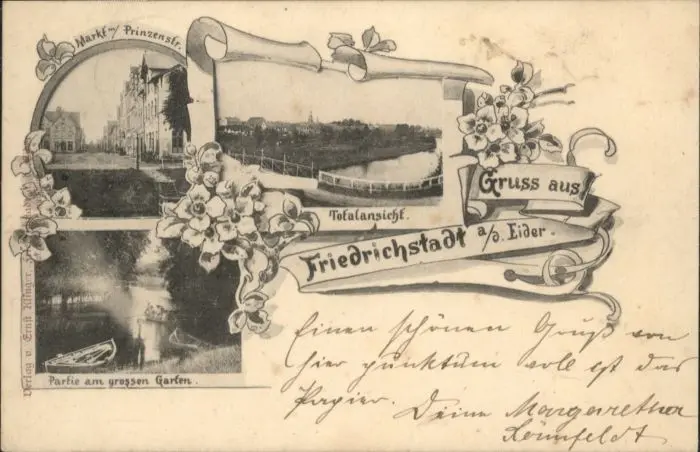 Markt m/ Prinzenstr.
Totalansicht.
Gruss aus
Friedrichstadt a/d. Eider.
Partie am grossen Garten.
Verlag v. Ernst Klinger,
Einen schönen Gruß von
hier punktum voll ist das
Papier. Deine Margaretha